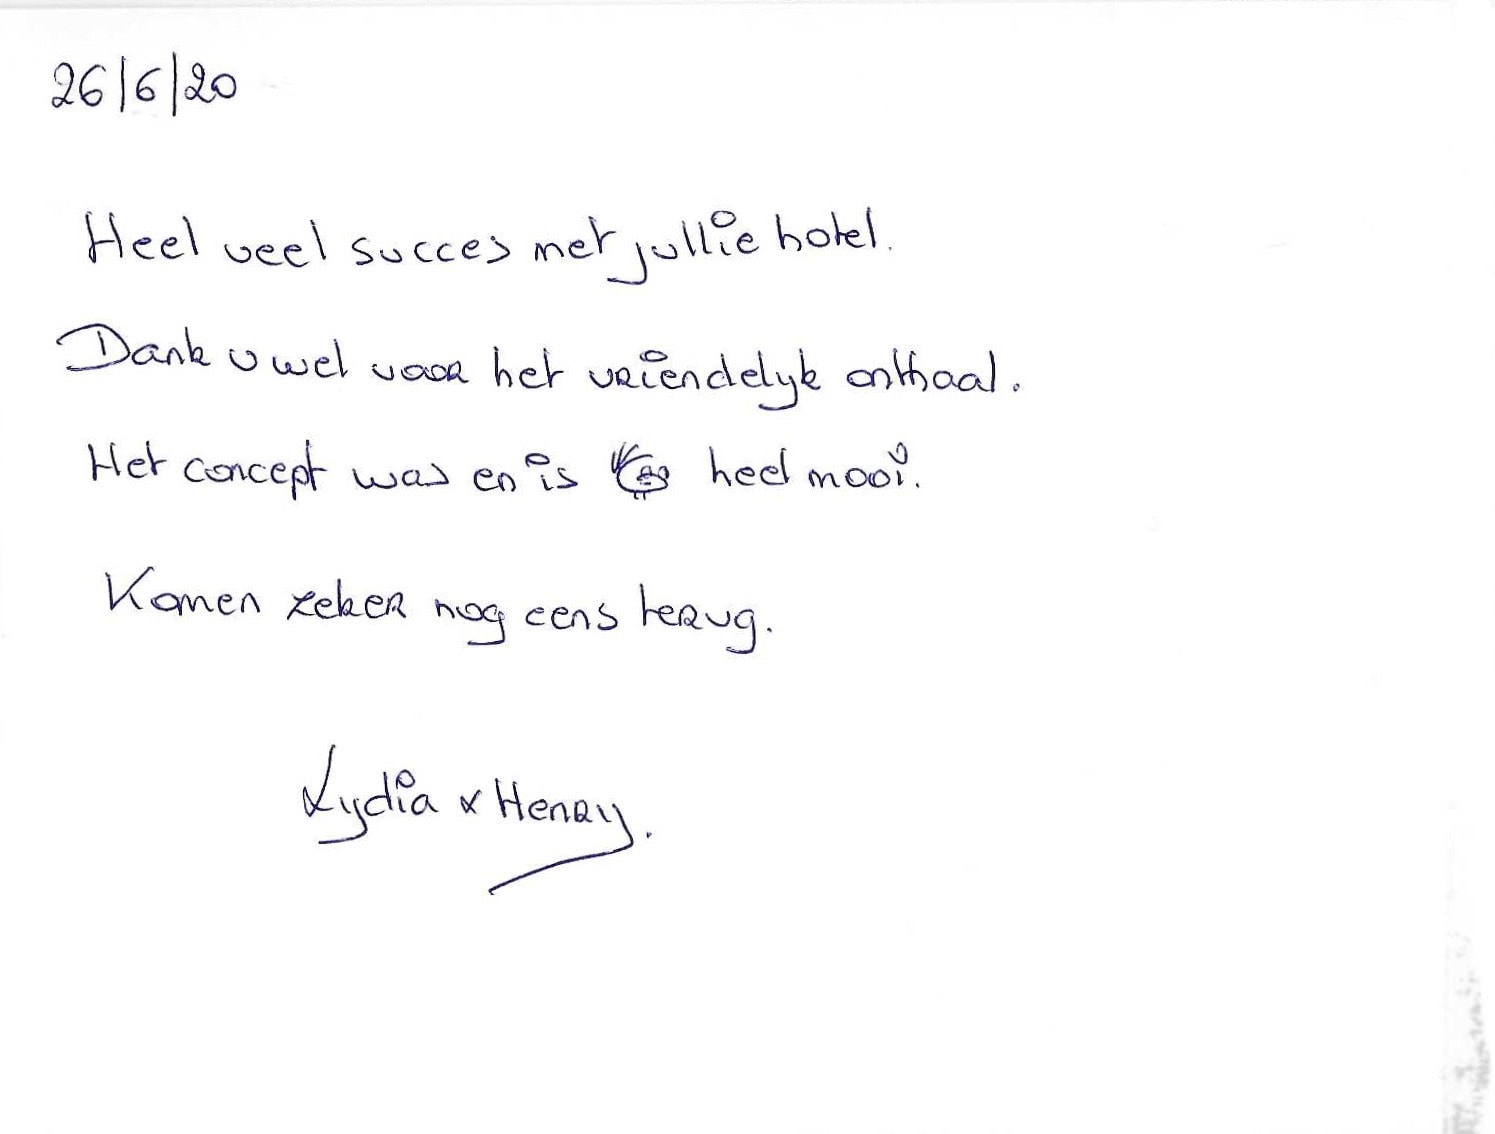 26/6/20
Heel veel succes met jullie hotel.
Dank u wel voor het vriendelyk onthaal.
Het concept was en is heel mooi.
Komen zeker nog eens terug.
Lydia & Henry.